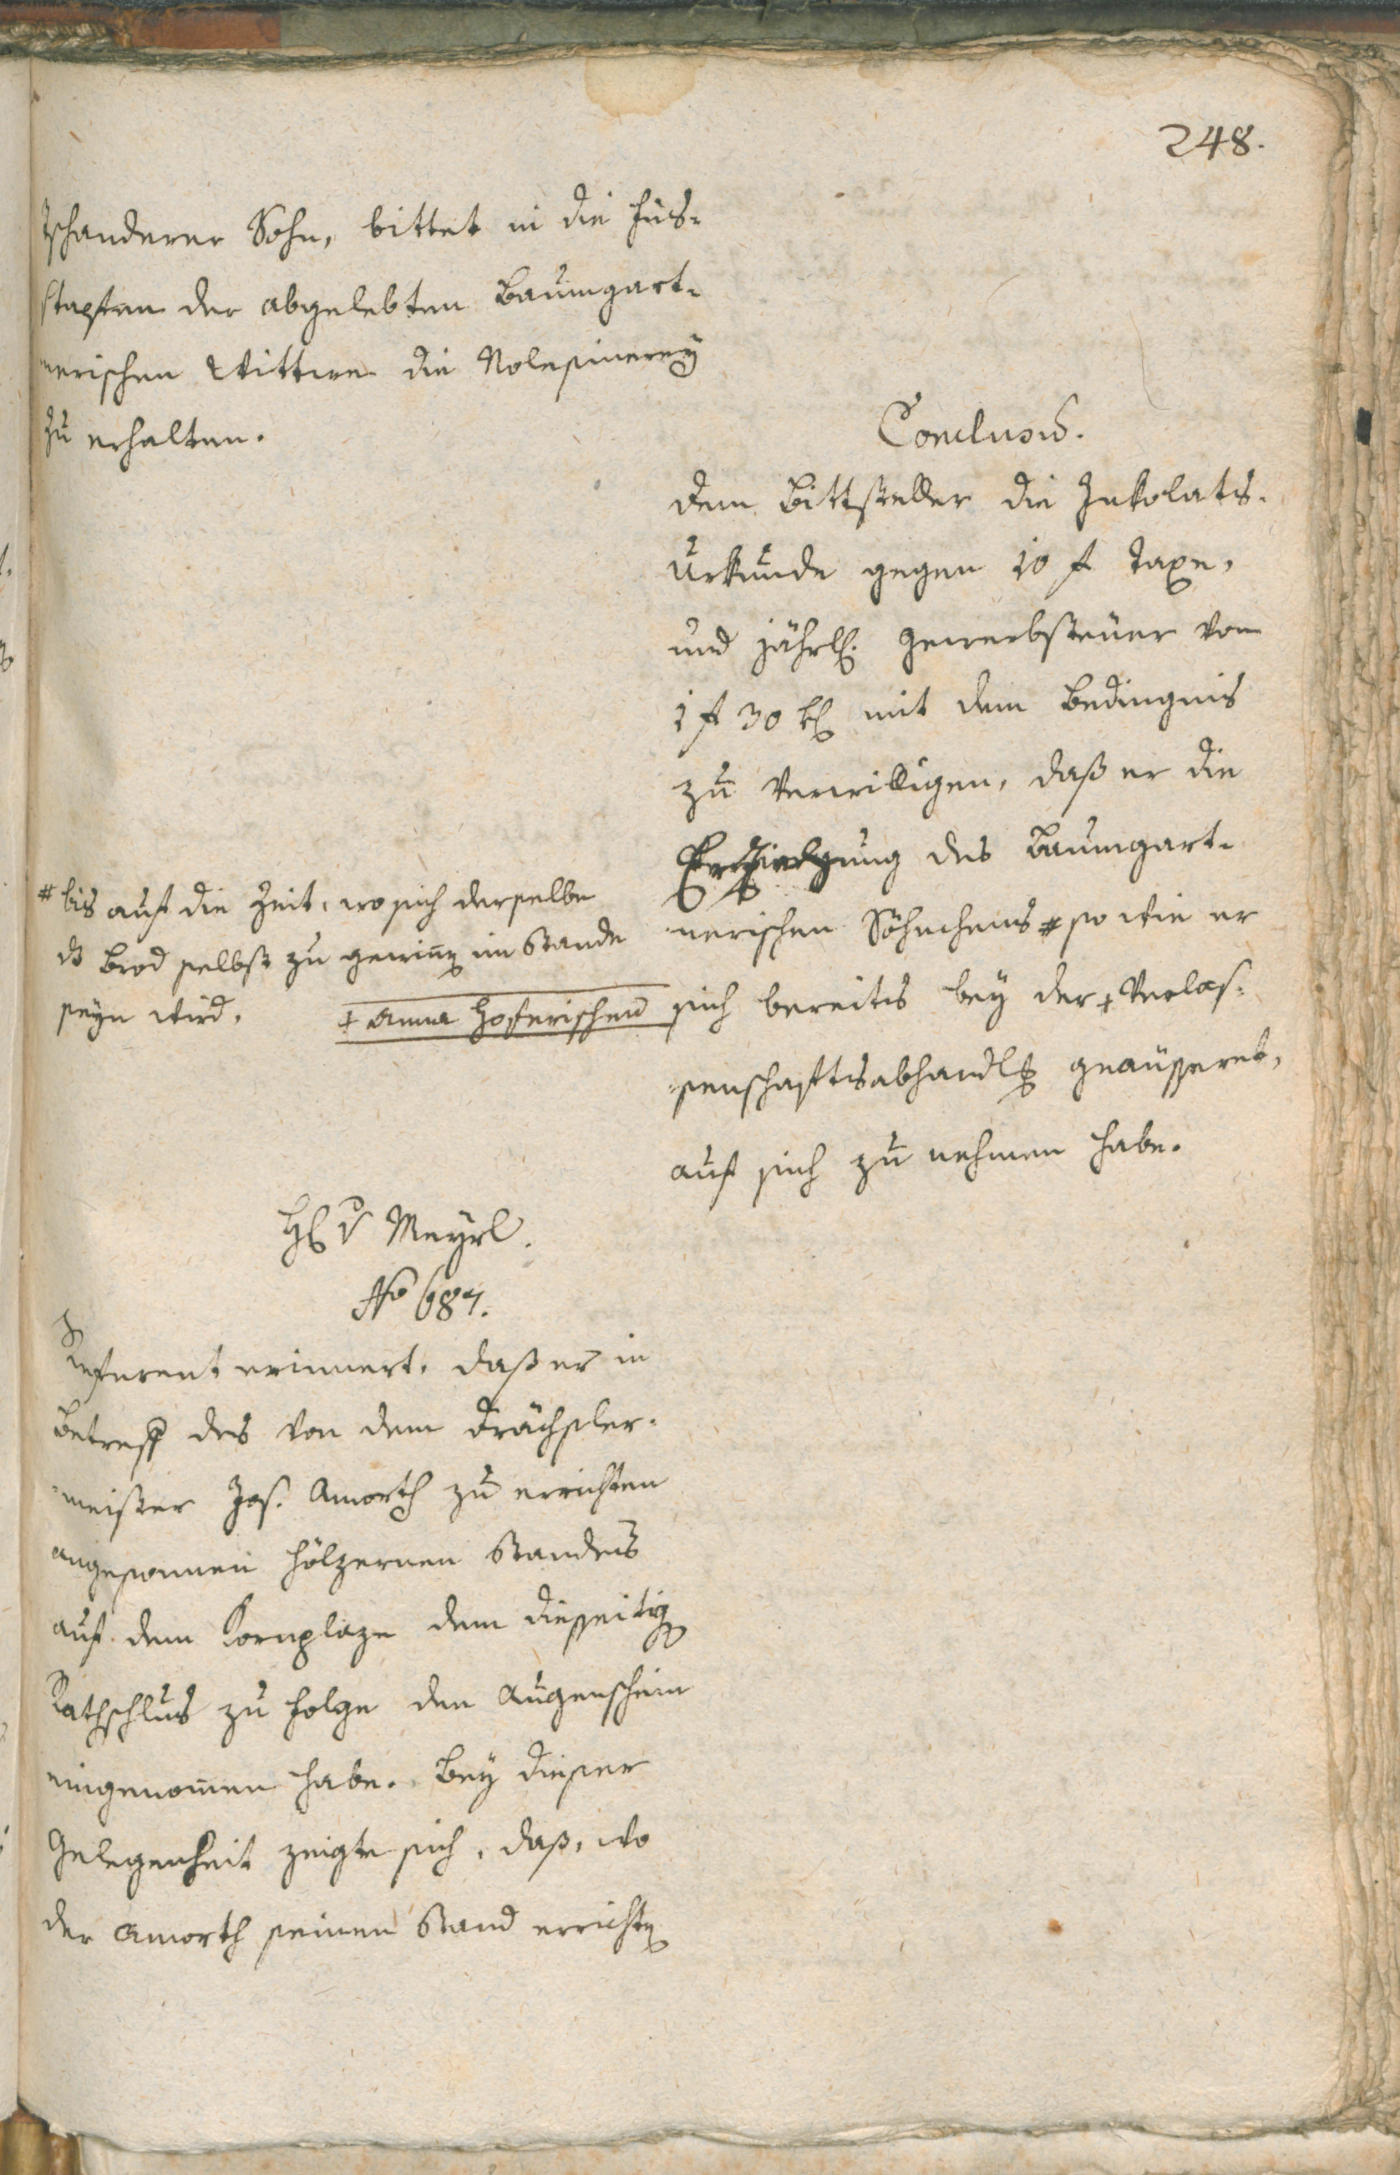 248.
Tschanderer Sohn, bittet in die Fus-
stapfen der abgelebten Baumgart-
nerischen Wittwe die
zu erhalten.
Conclusum.
dem Bittsteller die Inkolats-
Urkunde gegen 10 f Taxe,
und jährl. Gewerbsteuer von
1 f 30 kr mit dem Bedingnis
zu verwilligen, daß er die
Erziehung des Baumgart-
nerischen Söhnchens # so wie er
sich bereits bey der + Verlas-
senschaftsabhandlg geäusseret,
auf sich zu nehmen habe.
# bis auf die Zeit, wo sich derselbe
ds Brod selbst zu gewinen im Stande
seyn wird.
+ Anna Hoferischen
H v Mayrl.
No 687.
Referent erinnert, daß er in
Betreff des von dem Drächsler-
meister Jos. Amorth zu errichten
angesonnen hölzernen Standes
auf dem Kornplaze dem diesseitigen
Rathschlus zu Folge den Augenschein
eingenomen habe. Bey dieser
Gelegenheit zeigte sich, daß, wo
der Amorth seinen Stand errichten